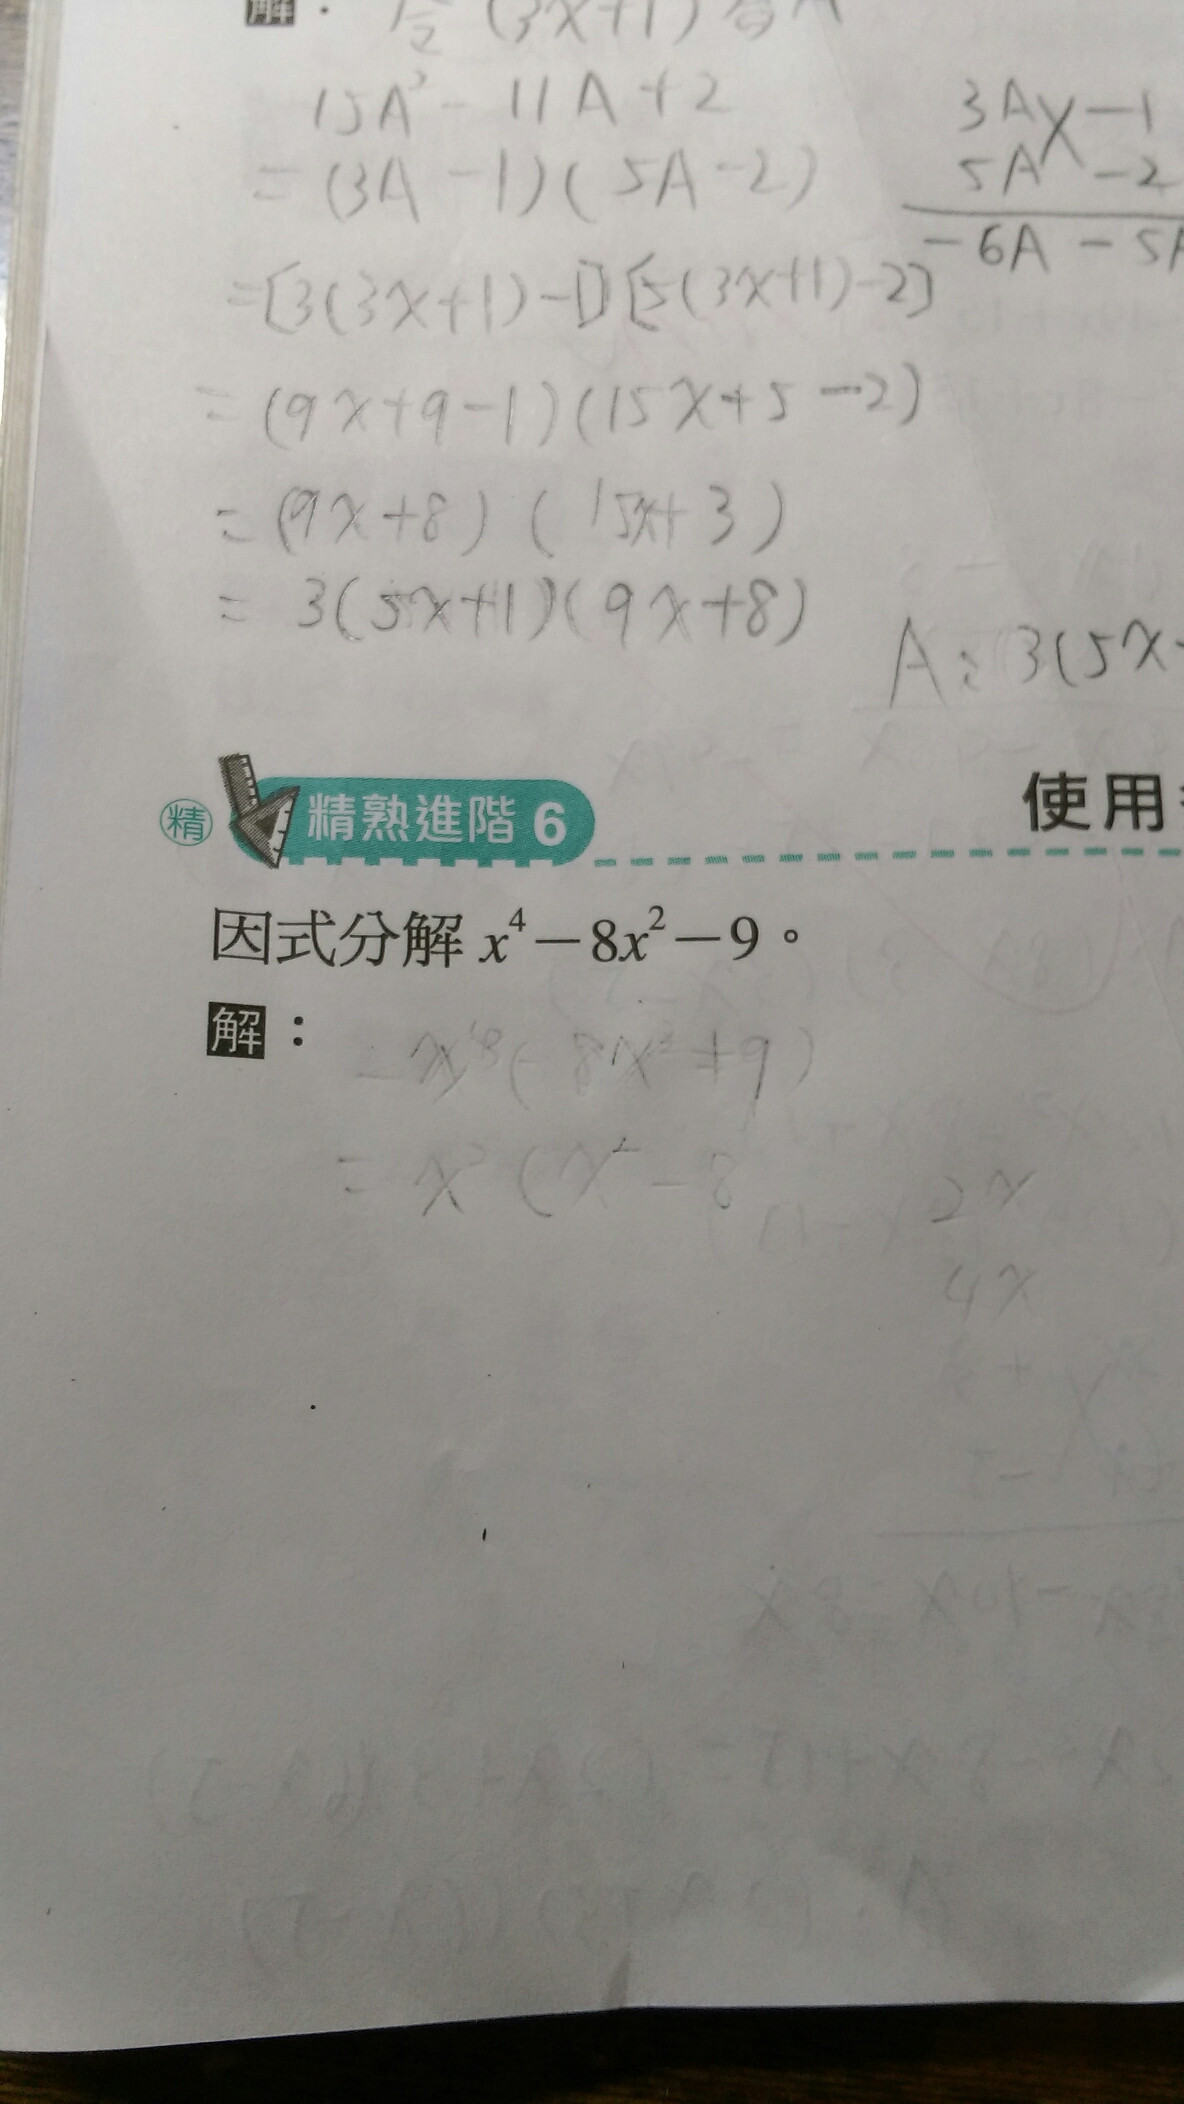 解： 令(3x+1)為A
15A²-11A+2
=(3A-1)(5A-2)
3A -1
5A -2
-6A-5A
=[3(3x+1)-1][5(3x+1)-2]
=(9x+9-1)(15x+5-2)
=(9x+8)(15x+3)
=3(5x+1)(9x+8)
A:3(5x
精 精熟進階 6
使用
因式分解 x⁴-8x²-9。
解：
= x²(x²-8
2x
4x